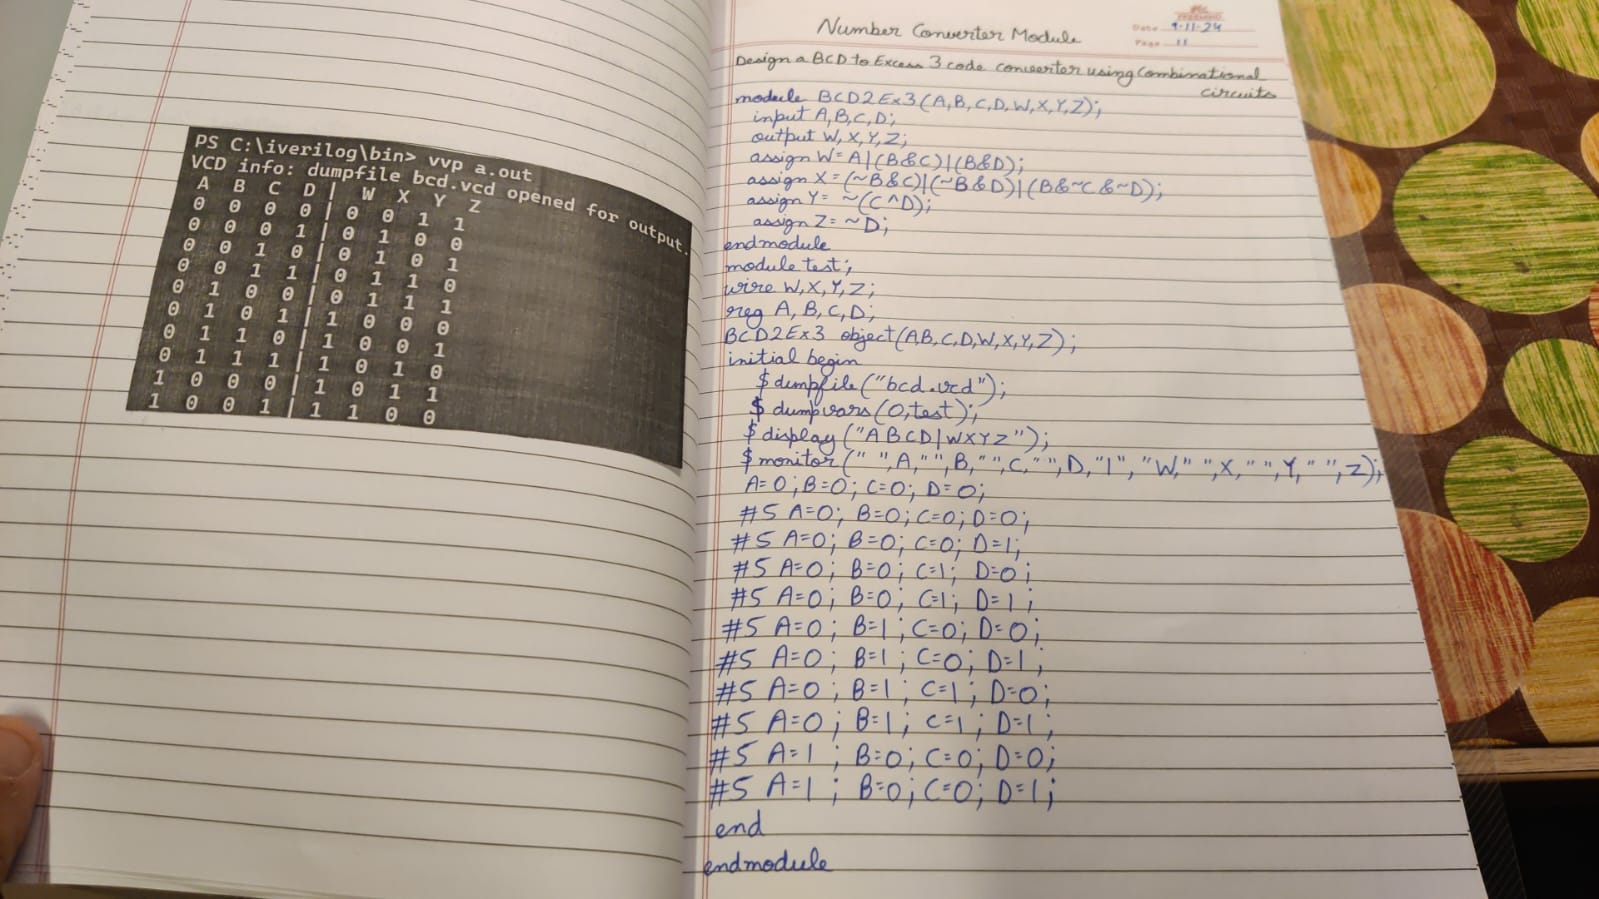 PS C:\iverilog\bin> vvp a.out
VCD info: dumpfile bcd.vcd opened for output.
A B C D | W X Y Z
0 0 0 0 | 0 0 1 1
0 0 0 1 | 0 1 0 0
0 0 1 0 | 0 1 0 1
0 0 1 1 | 0 1 1 0
0 1 0 0 | 0 1 1 1
0 1 0 1 | 1 0 0 0
0 1 1 0 | 1 0 0 1
0 1 1 1 | 1 0 1 0
1 0 0 0 | 1 0 1 1
1 0 0 1 | 1 1 0 0
Number Converter Module
Date 9-11-24
Page 11
Design a BCD to Excess 3 code converter using Combinational
circuits
module BCD2Ex3(A,B,C,D,W,X,Y,Z);
input A,B,C,D;
output W,X,Y,Z;
assign W=A|(B&C)|(B&D);
assign X=(~B&C)|(~B&D)|(B&~C&~D);
assign Y= ~(C^D);
assign Z= ~D;
endmodule
module test;
wire W,X,Y,Z;
reg A,B,C,D;
BCD2Ex3 object(A,B,C,D,W,X,Y,Z);
initial begin
$dumpfile("bcd.vcd");
$dumpvars(0,test);
$display("ABCD|WXYZ");
$monitor(" ",A," ",B," ",C," ",D,"|","W," ",X," ",Y," ",Z);
A=0;B=0;C=0;D=0;
#5 A=0; B=0;C=0;D=0;
#5 A=0; B=0; C=0; D=1;
#5 A=0; B=0; C=1; D=0;
#5 A=0; B=0; C=1; D=1;
#5 A=0; B=1; C=0; D=0;
#5 A=0; B=1; C=0; D=1;
#5 A=0; B=1; C=1; D=0;
#5 A=0; B=1; C=1; D=1;
#5 A=1; B=0; C=0; D=0;
#5 A=1; B=0; C=0; D=1;
end
endmodule